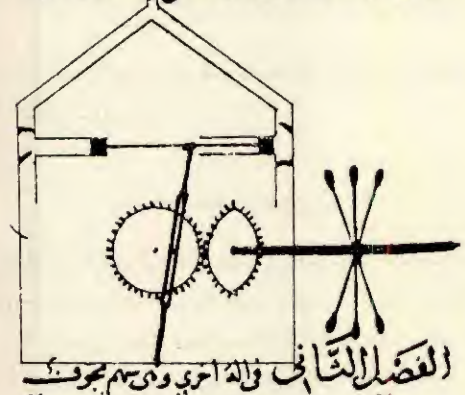 الفصل الثاني في آلة أخرى وهي سهم مجوف